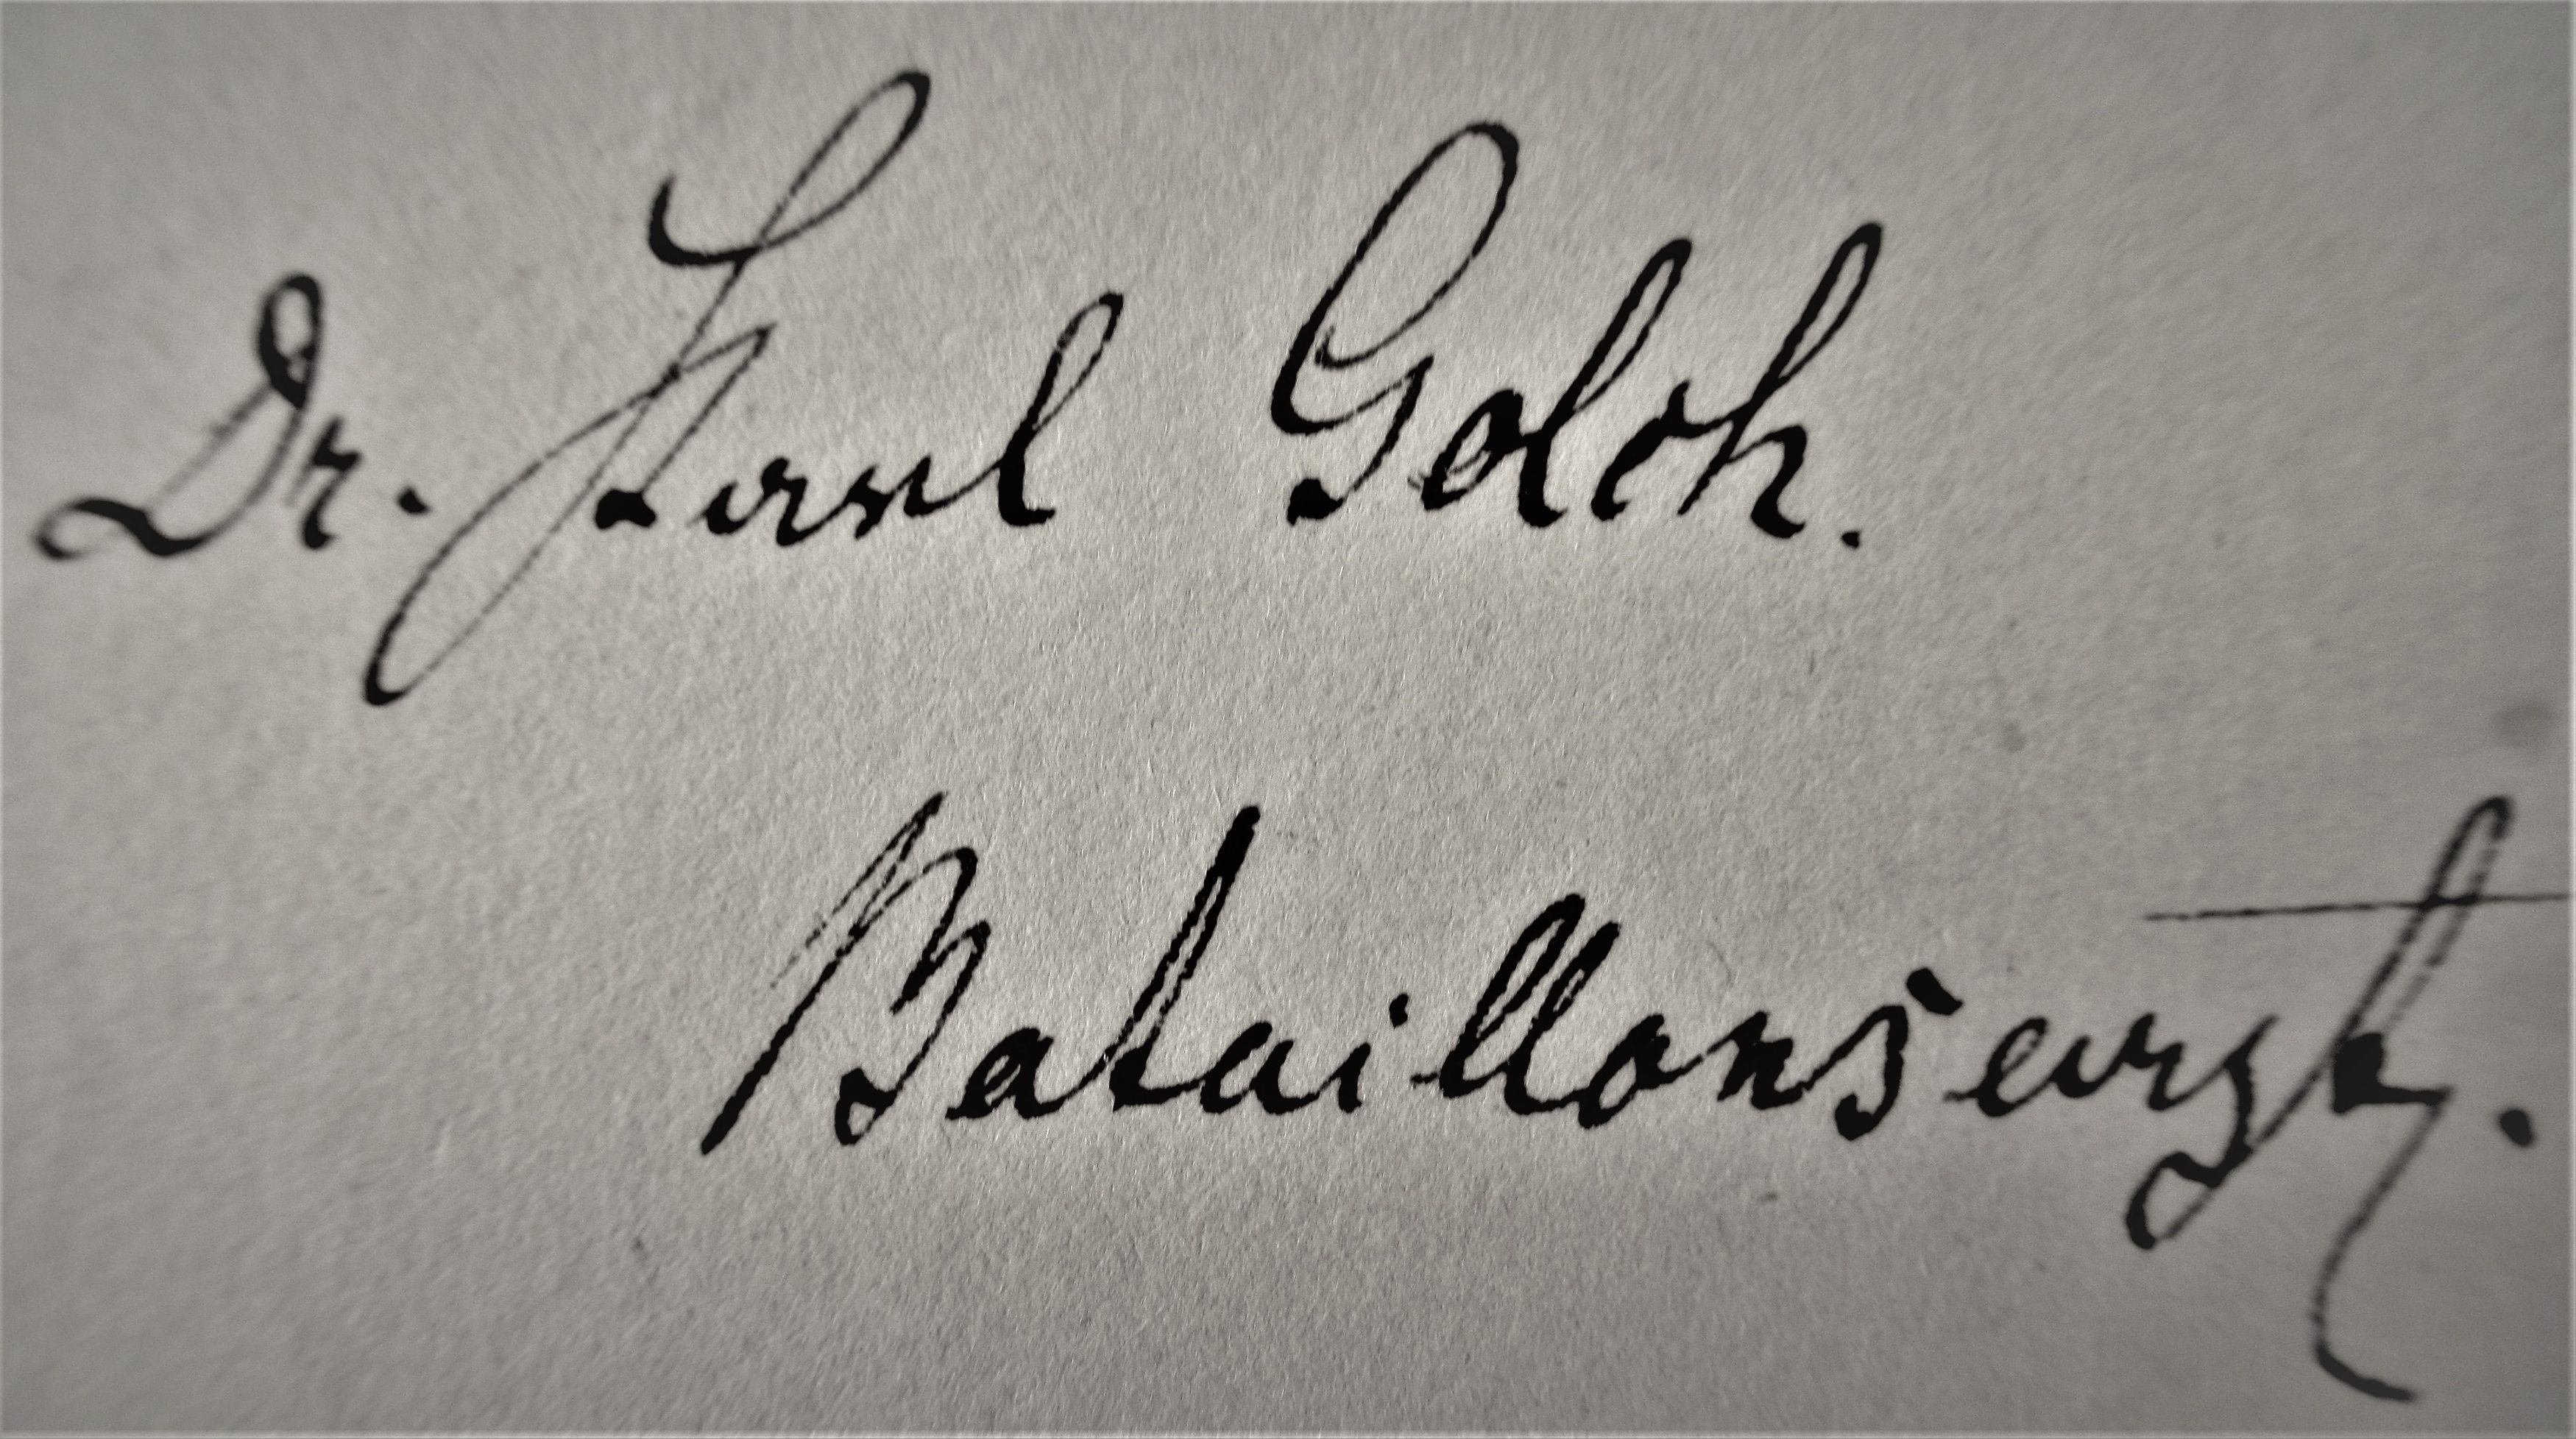 Dr. Karl Golch.
Bataillonsarzt.